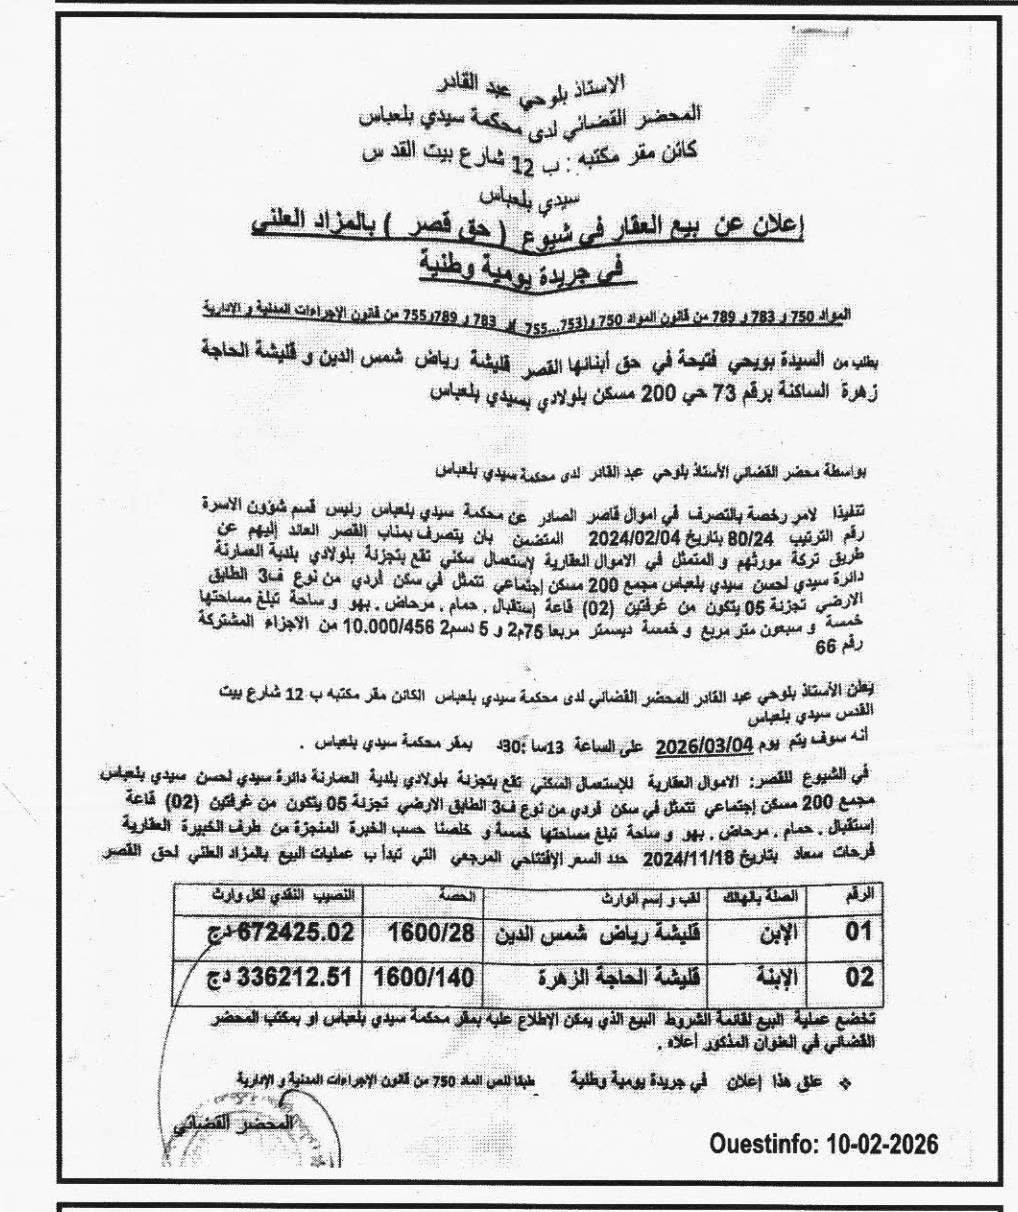 الاستاذ بلوحي عبد القادر
المحضر القضائي لدى محكمة سيدي بلعباس
كائن مقر مكتبه : ب 12 شارع بيت القد س
سيدي بلعباس
إعلان عن بيع العقار في شيوع ( حق قصر ) بالمزاد العلني
في جريدة يومية وطنية
المواد 750 و 783 و 789 من قانون المواد 750 و(753...755 )و 783 و 789و755 من قانون الإجراءات المدنية و الإدارية
بطلب من السيدة بويحي فتيحة في حق أبنائها القصر قليشة رياض شمس الدين و قليشة الحاجة
زهرة الساكنة برقم 73 حي 200 مسكن بلولادي بسيدي بلعباس
بواسطة محضر القضائي الأستاذ بلوحي عبد القادر لدى محكمة سيدي بلعباس
تنفيذا لامر رخصة بالتصرف في اموال قاصر الصادر عن محكمة سيدي بلعباس رئيس قسم شؤون الاسرة
رقم الترتيب 80/24 بتاريخ 2024/02/04 المتضمن بان يتصرف بمناب القصر العائد إليهم عن
طريق تركة مورثهم و المتمثل في الاموال العقارية لإستعمال سكني تقع بتجزئة بلولادي بلدية العمارنة
دائرة سيدي لحسن سيدي بلعباس مجمع 200 مسكن إجتماعي تتمثل في سكن فردي من نوع ف3 الطابق
الارضي تجزئة 05 يتكون من غرفتين (02) قاعة إستقبال . حمام . مرحاض . بهو و ساحة تبلغ مساحتها
خمسة و سبعون متر مربع و خمسة ديسمتر مربعا 75م2 و 5 دسم2 10.000/456 من الاجزاء المشتركة
رقم 66
يعلن الأستاذ بلوحي عبد القادر المحضر القضائي لدى محكمة سيدي بلعباس الكائن مقر مكتبه ب 12 شارع بيت
القدس سيدي بلعباس
أنه سوف يتم يوم 2026/03/04 على الساعة 13سا :30د بمقر محكمة سيدي بلعباس .
في الشيوع للقصر: الاموال العقارية للإستعمال السكني تقع بتجزئة بلولادي بلدية العمارنة دائرة سيدي لحسن سيدي بلعباس
مجمع 200 مسكن إجتماعي تتمثل في سكن فردي من نوع ف3 الطابق الارضي تجزئة 05 يتكون من غرفتين (02) قاعة
إستقبال . حمام . مرحاض . بهو و ساحة تبلغ مساحتها خمسة و خلصنا حسب الخبرة المنجزة من طرف الخبيرة العقارية
فرحات سعاد بتاريخ 2024/11/18 حدد السعر الإفتتاحي المرجعي التي تبدأ ب عمليات البيع بالمزاد العلني لحق القصر
الرقم الصلة بالهالك لقب و إسم الوارث الحصة النصيب النقدي لكل وارث
01 الإبن قليشة رياض شمس الدين 1600/28 672425.02 دج
02 الإبنة قليشة الحاجة الزهرة 1600/140 336212.51 دج
تخضع عملية البيع لقائمة الشروط البيع الذي يمكن الإطلاع عليه بمقر محكمة سيدي بلعباس او بمكتب المحضر
القضائي في العنوان المذكور أعلاه .
❖ علق هذا إعلان في جريدة يومية وطنية طبقا للنص الماد 750 من قانون الإجراءات المدنية و الإدارية
المحضر القضائي
Ouestinfo: 10-02-2026